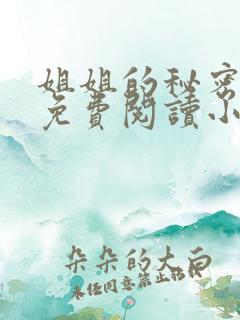 姐姐的秘密
免費閱讀小
朵朵的大白
未任同意禁止转载